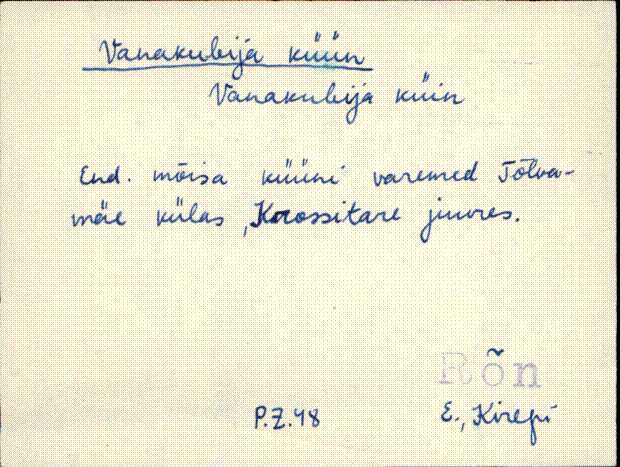 Vanakubija küün
Vanakubija küin
End. mõisa küüni varemed Tõlva-
mäe külas, Krossitare juures.
Rõn
P.Z.48
E., Kirepi